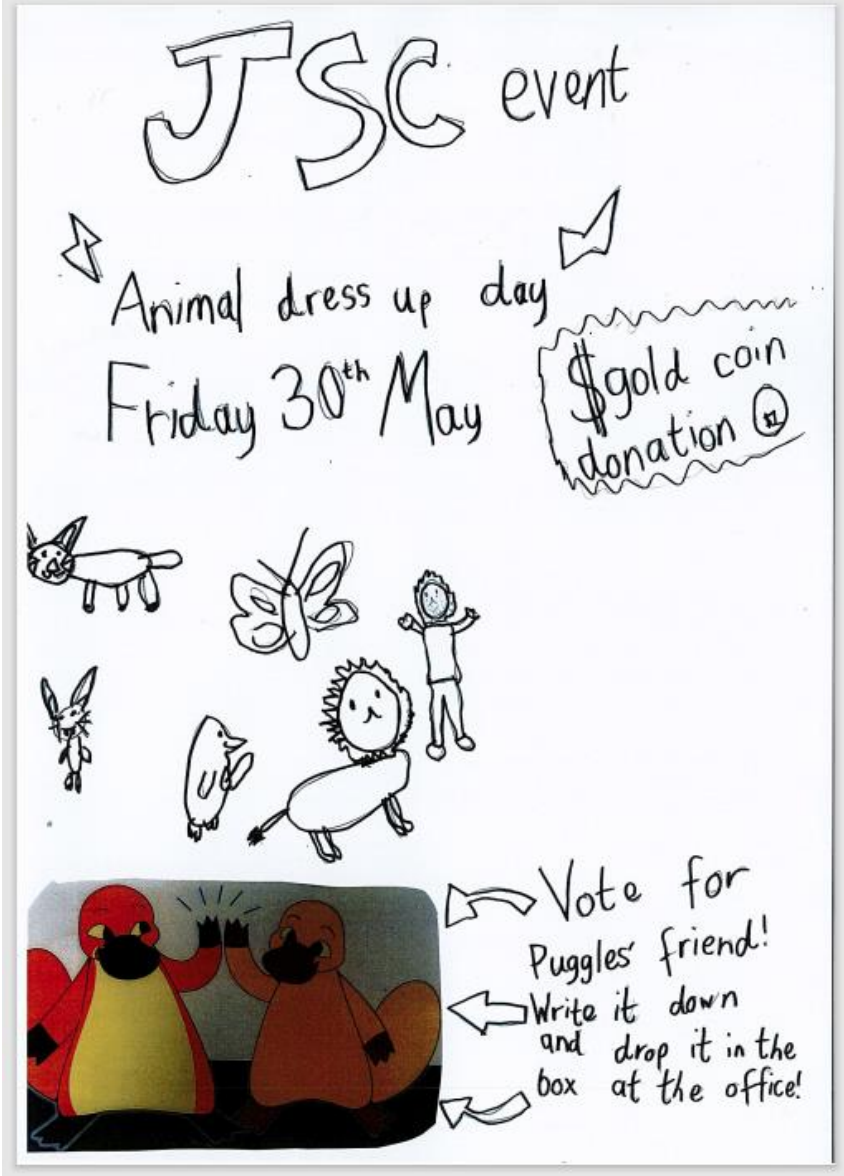 JSC event
Animal dress up day
Friday 30th May
$gold coin
donation $1
Vote for
Puggles' friend!
Write it down
and drop it in the
box at the office!